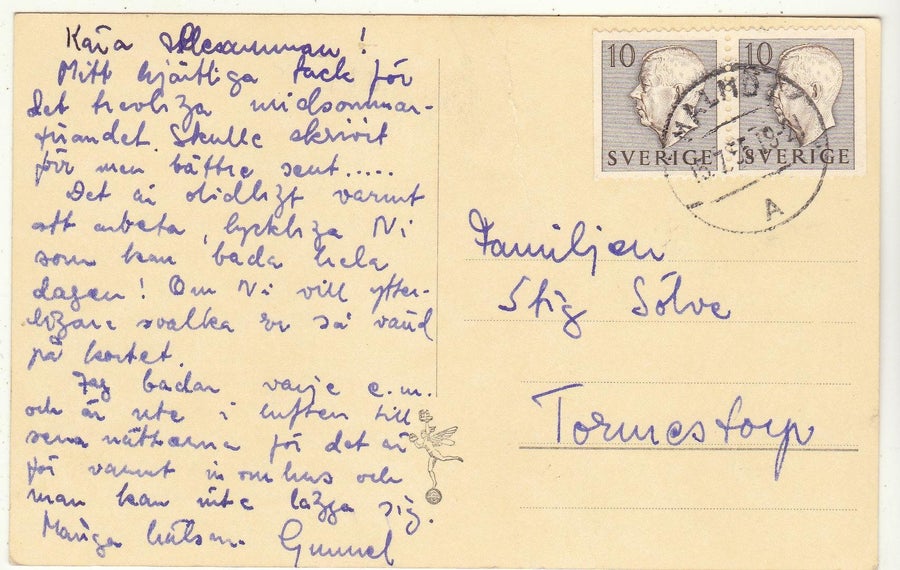 Kära !
Mitt hjärtliga tack för
det trevliga midsommar-
firandet. Skulle skrivit
förr men bättre sent.....
Det är olidligt varmt
att arbeta, lyckliga Ni
som kan bada hela
dagen! Om Ni vill ytter-
ligare svalka er så vänd
på kortet.
Jag badar varje e.m.
och är ute i luften till
sena nätterna för det är
för varmt inomhus och
man kan inte lägga sig.
Många hälsn. Gunnel
10 SVERIGE
10 SVERIGE
MALMÖ
A
Familjen
Stig Sölve
Tormestorp